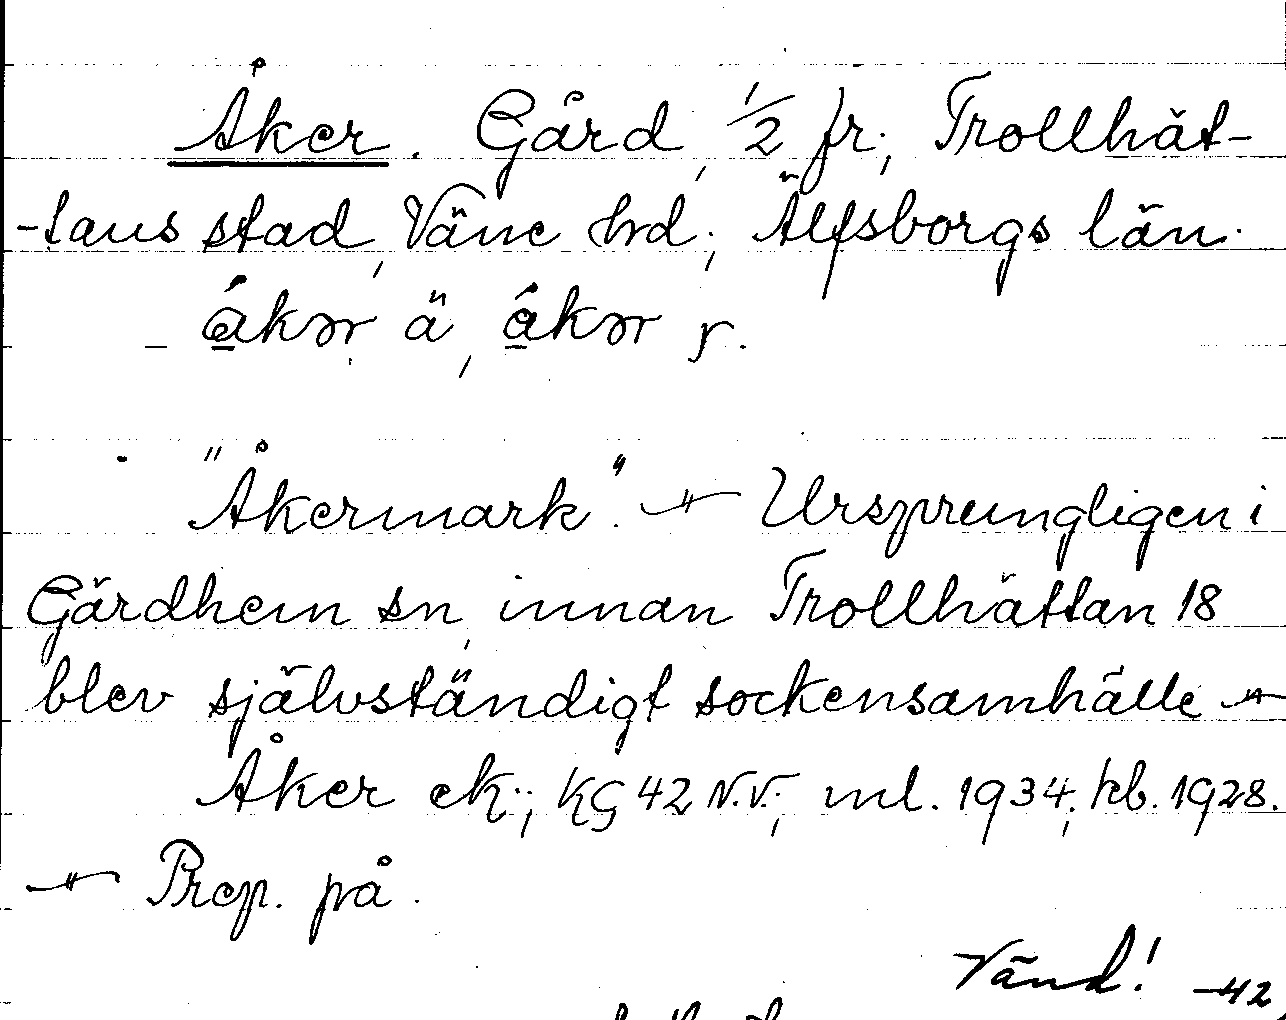 Åker. Gård, 1/2 fr; Trollhät-
-tans stad, Väne hd; Älfsborgs län.
åkər ä, åkər y.
"Åkermark". — Ursprungligen i
Gärdhem sn, innan Trollhättan 18
blev självständigt sockensamhälle —
Åker ek.; KG 42 N.V.; ml. 1934; kb. 1928.
— Prep. på.
Vänd! -42